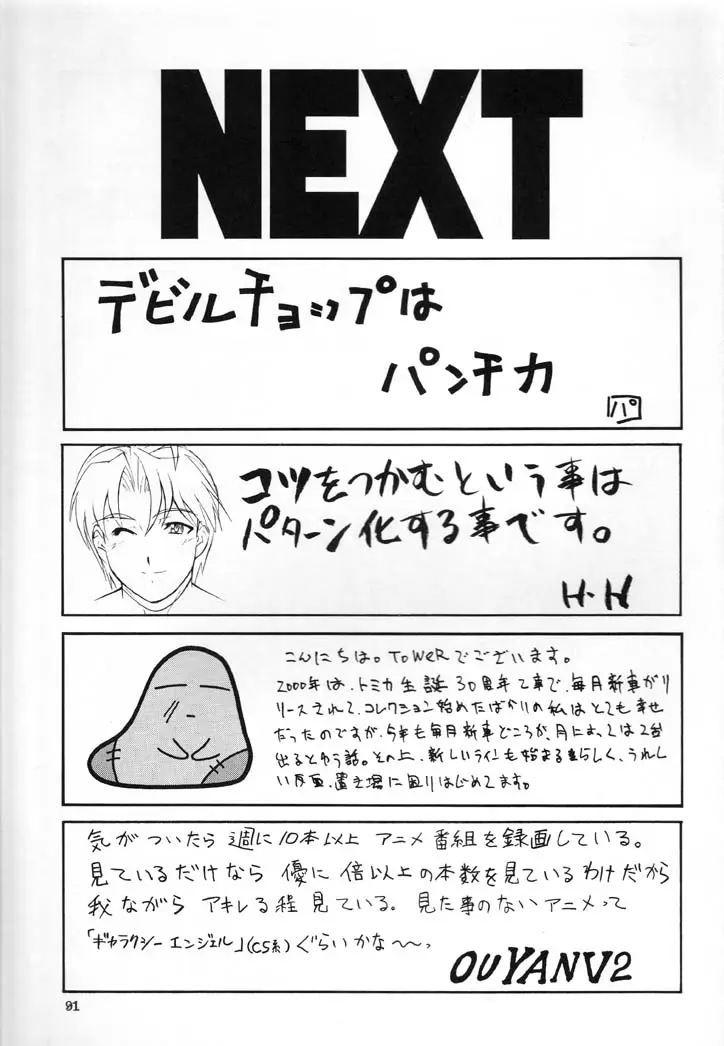 NEXT
デビルチョップは
パンチ力
パ
コツをつかむという事は
パターン化する事です。
H・H
こんにちは。TOWERでございます。
2000年は、トミカ生誕30周年て事で、毎月新車がリ
リースされて、コレクション始めたばかりの私はとても幸せ
だったのですが、今年も毎月新車どころか、月によっては2台
出るとゆう話。その上、新しいラインも始まるらしく、うれし
い反面、置き場に困りはじめてます。
気がついたら 週に10本以上 アニメ番組を録画している。
見ているだけなら 優に 倍以上の本数を見ているわけだから
我ながら アキレる程 見ている。見た事のないアニメって
「ギャラクシーエンジェル」(CS系)ぐらいかな〜〜っ
OUYANV2
91